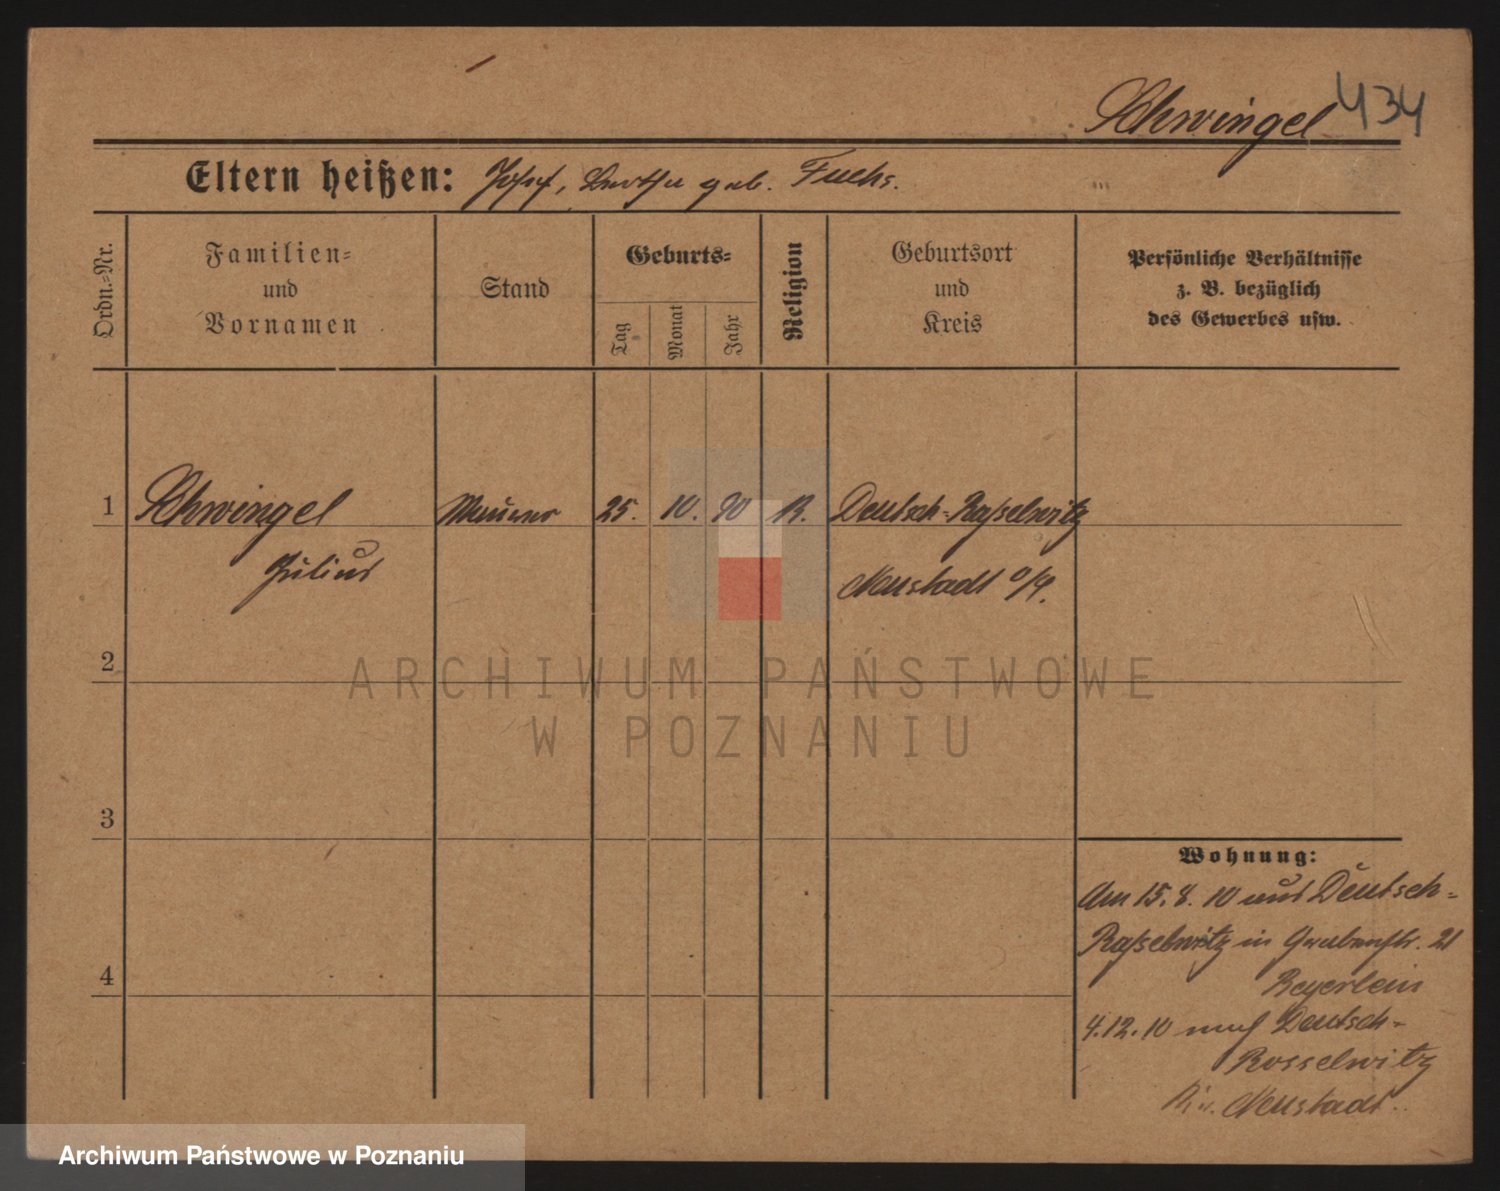 Schwingel 434
Eltern heißen: Josef, Bertha geb. Fuchs.
Ordn.-Nr.
Familien-
und
Vornamen
Stand
Geburts-
Tag
Monat
Jahr
Religion
Geburtsort
und
Kreis
Persönliche Verhältnisse
z. B. bezüglich
des Gewerbes usw.
1 Schwingel Maurer 25. 10. 90 R. Deutsch-Rasselwitz
Julius Neustadt o/S.
2
ARCHIWUM PAŃSTWOWE
W POZNANIU
3
Wohnung:
Am 15.8.10 aus Deutsch-
Rasselwitz in Grabenstr. 21
Beyerlein
4
4.12.10 nach Deutsch-
Rosselwitz
Kr. Neustadt.
Archiwum Państwowe w Poznaniu